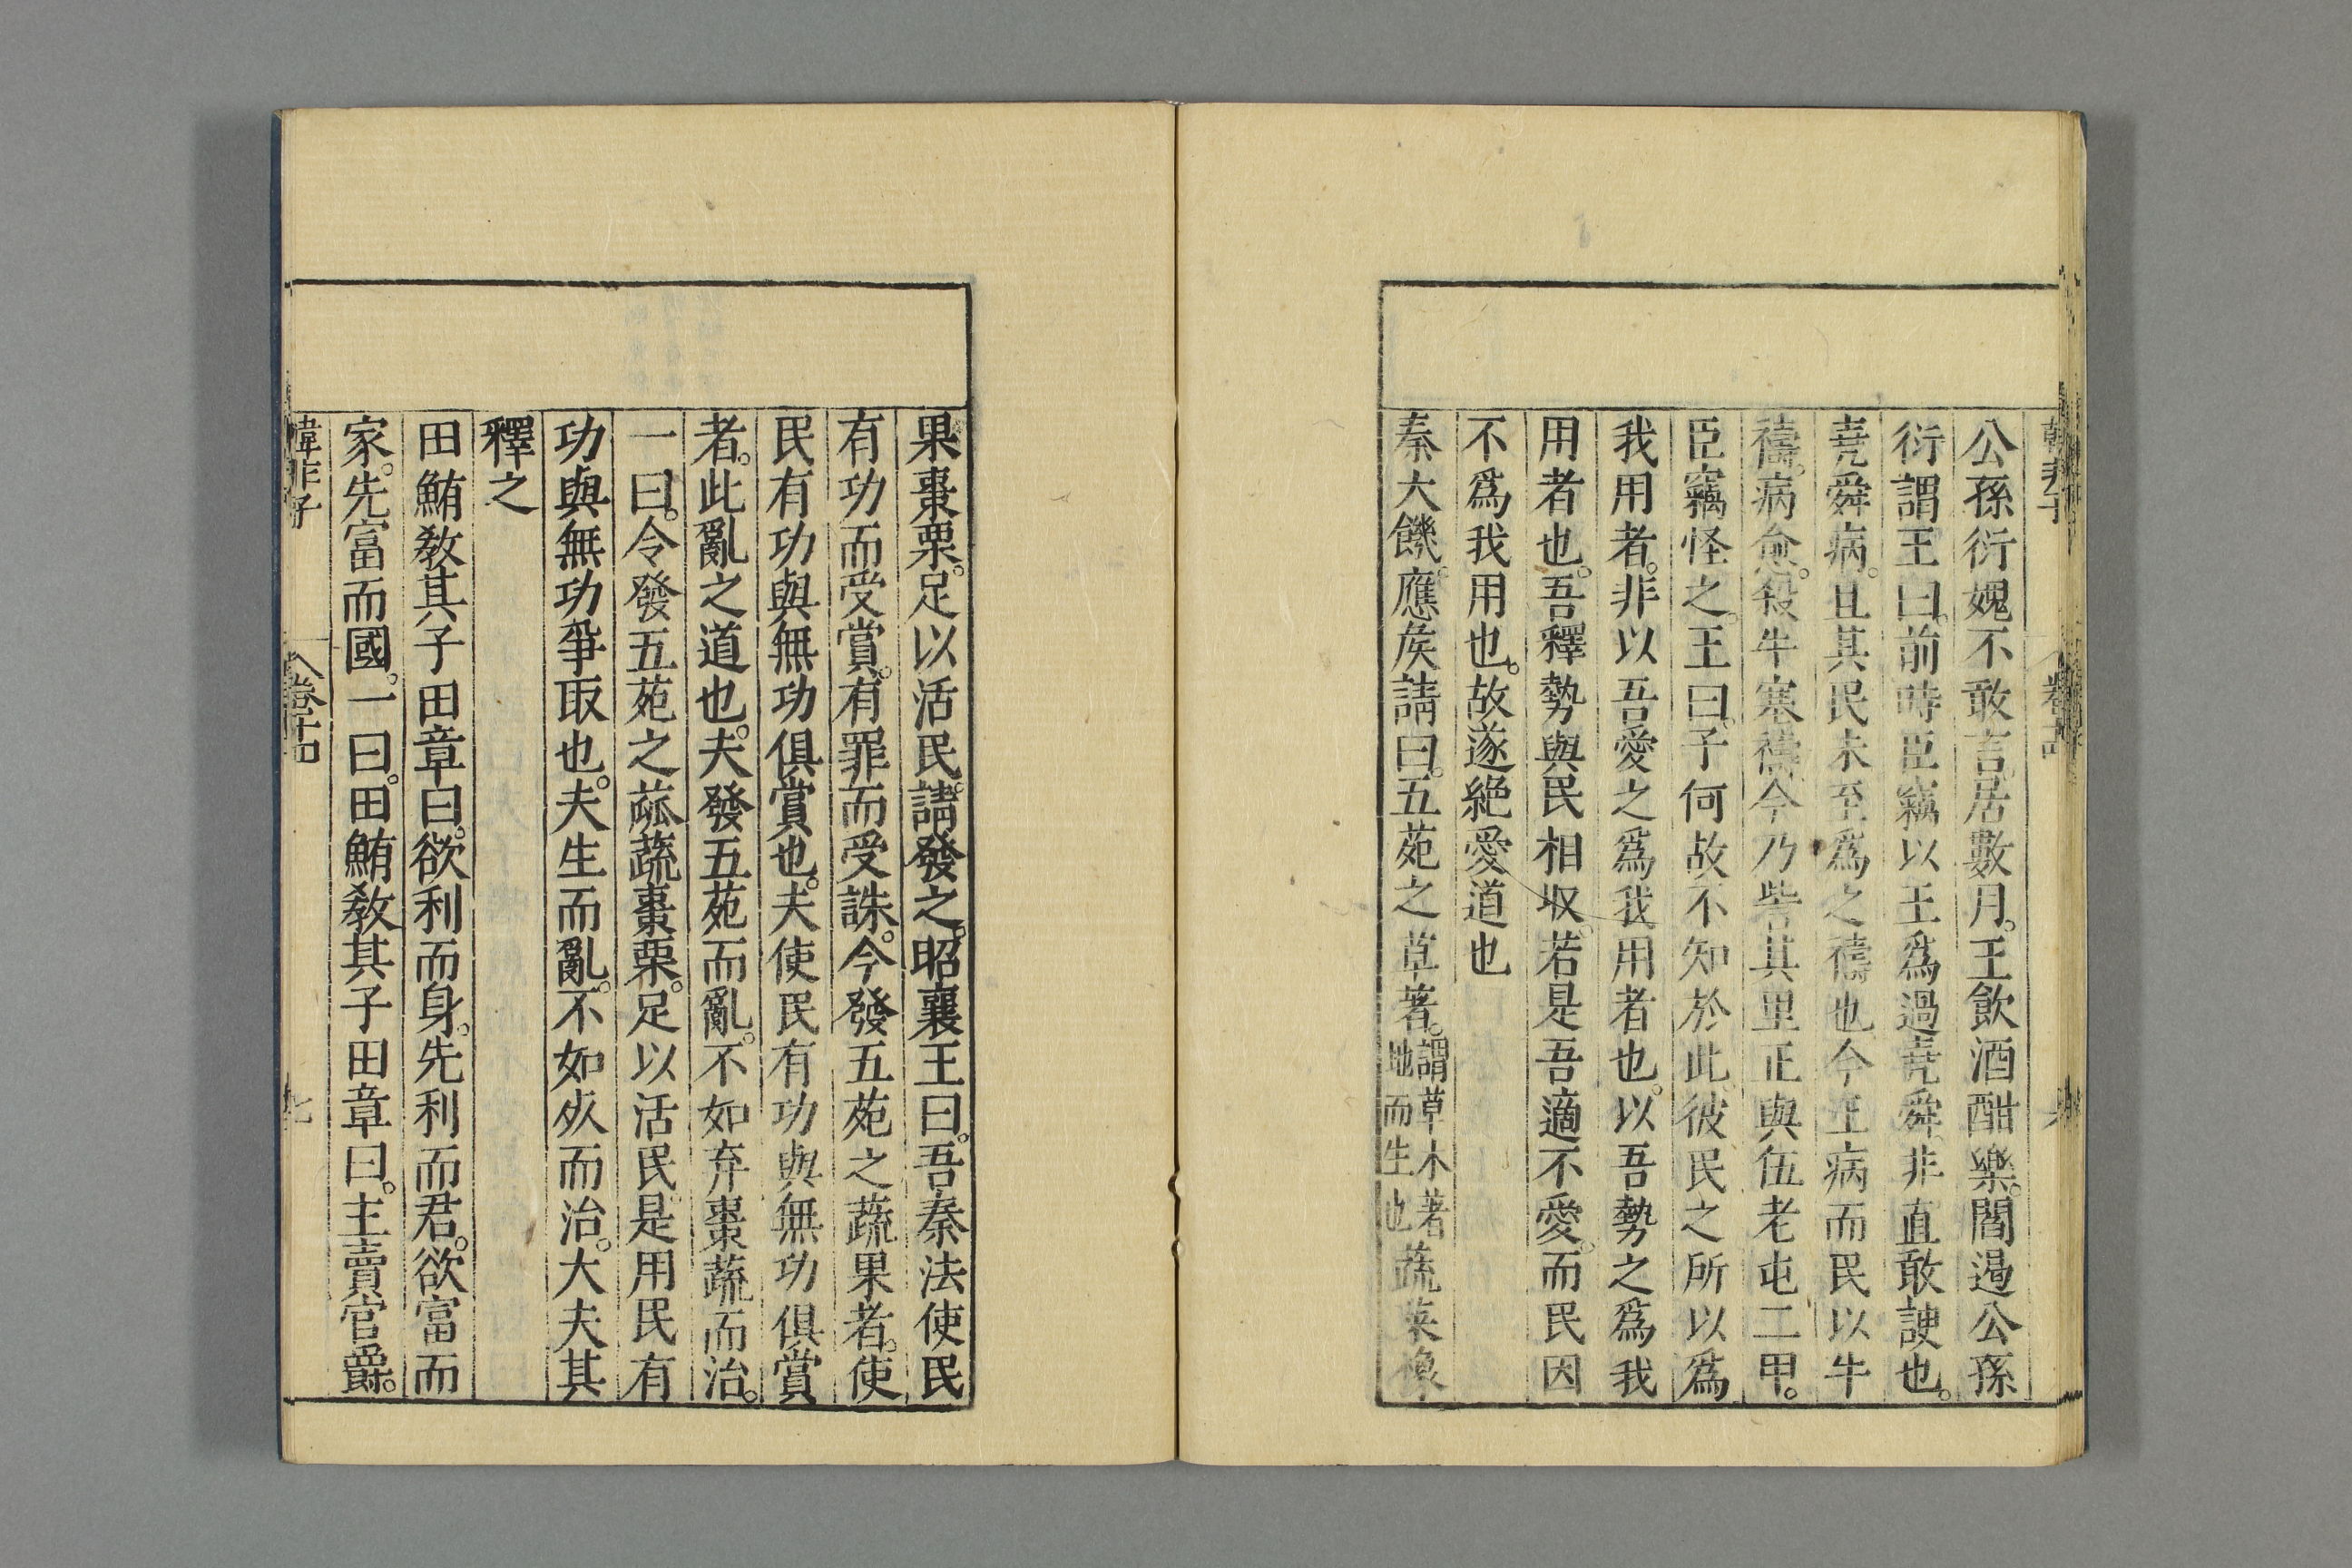 公孫衍媿不敢言居數月。王飲酒酣樂。閻遏公孫
衍謂王曰。前時臣竊以王爲過堯舜。非直敢諛也。
堯舜病。且其民未至爲之禱也。今王病而民以牛
禱。病愈。殺牛塞禱。今乃訾其里正與伍老屯二甲。
臣竊怪之。王曰。子何故不知於此。彼民之所以爲
我用者。非以吾愛之爲我用者也。以吾勢之爲我
用者也。吾釋勢與民相収。若是吾適不愛。而民因
不爲我用也。故遂絶愛道也
秦大饑。應矦請曰。五苑之草著。謂草木著地而生也蔬菜橡
果棗栗。足以活民。請發之。昭襄王曰。吾秦法使民
有功而受賞。有罪而受誅。今發五苑之蔬果者。使
民有功與無功俱賞也。夫使民有功與無功俱賞
者。此亂之道也。夫發五苑而亂。不如弃棗蔬而治。
一曰。令發五苑之蓏蔬棗栗。足以活民。是用民有
功與無功爭取也。夫生而亂。不如死而治。大夫其
釋之
田鮪敎其子田章曰。欲利而身。先利而君。欲富而
家。先富而國。一曰。田鮪敎其子田章曰。主賣官爵。
韓非子 卷十四 七